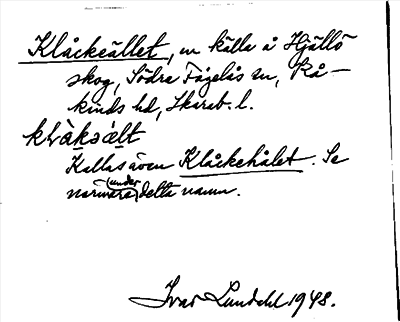 Klåckeället, en källa å Hjällö
skog, Södra Fågelås sn, Kå-
kinds hd, Skarab. l.
klåkəælt
Kallas även Klåckehålet. Se
närmare (under) detta namn.
Ivar Lundahl 1948.